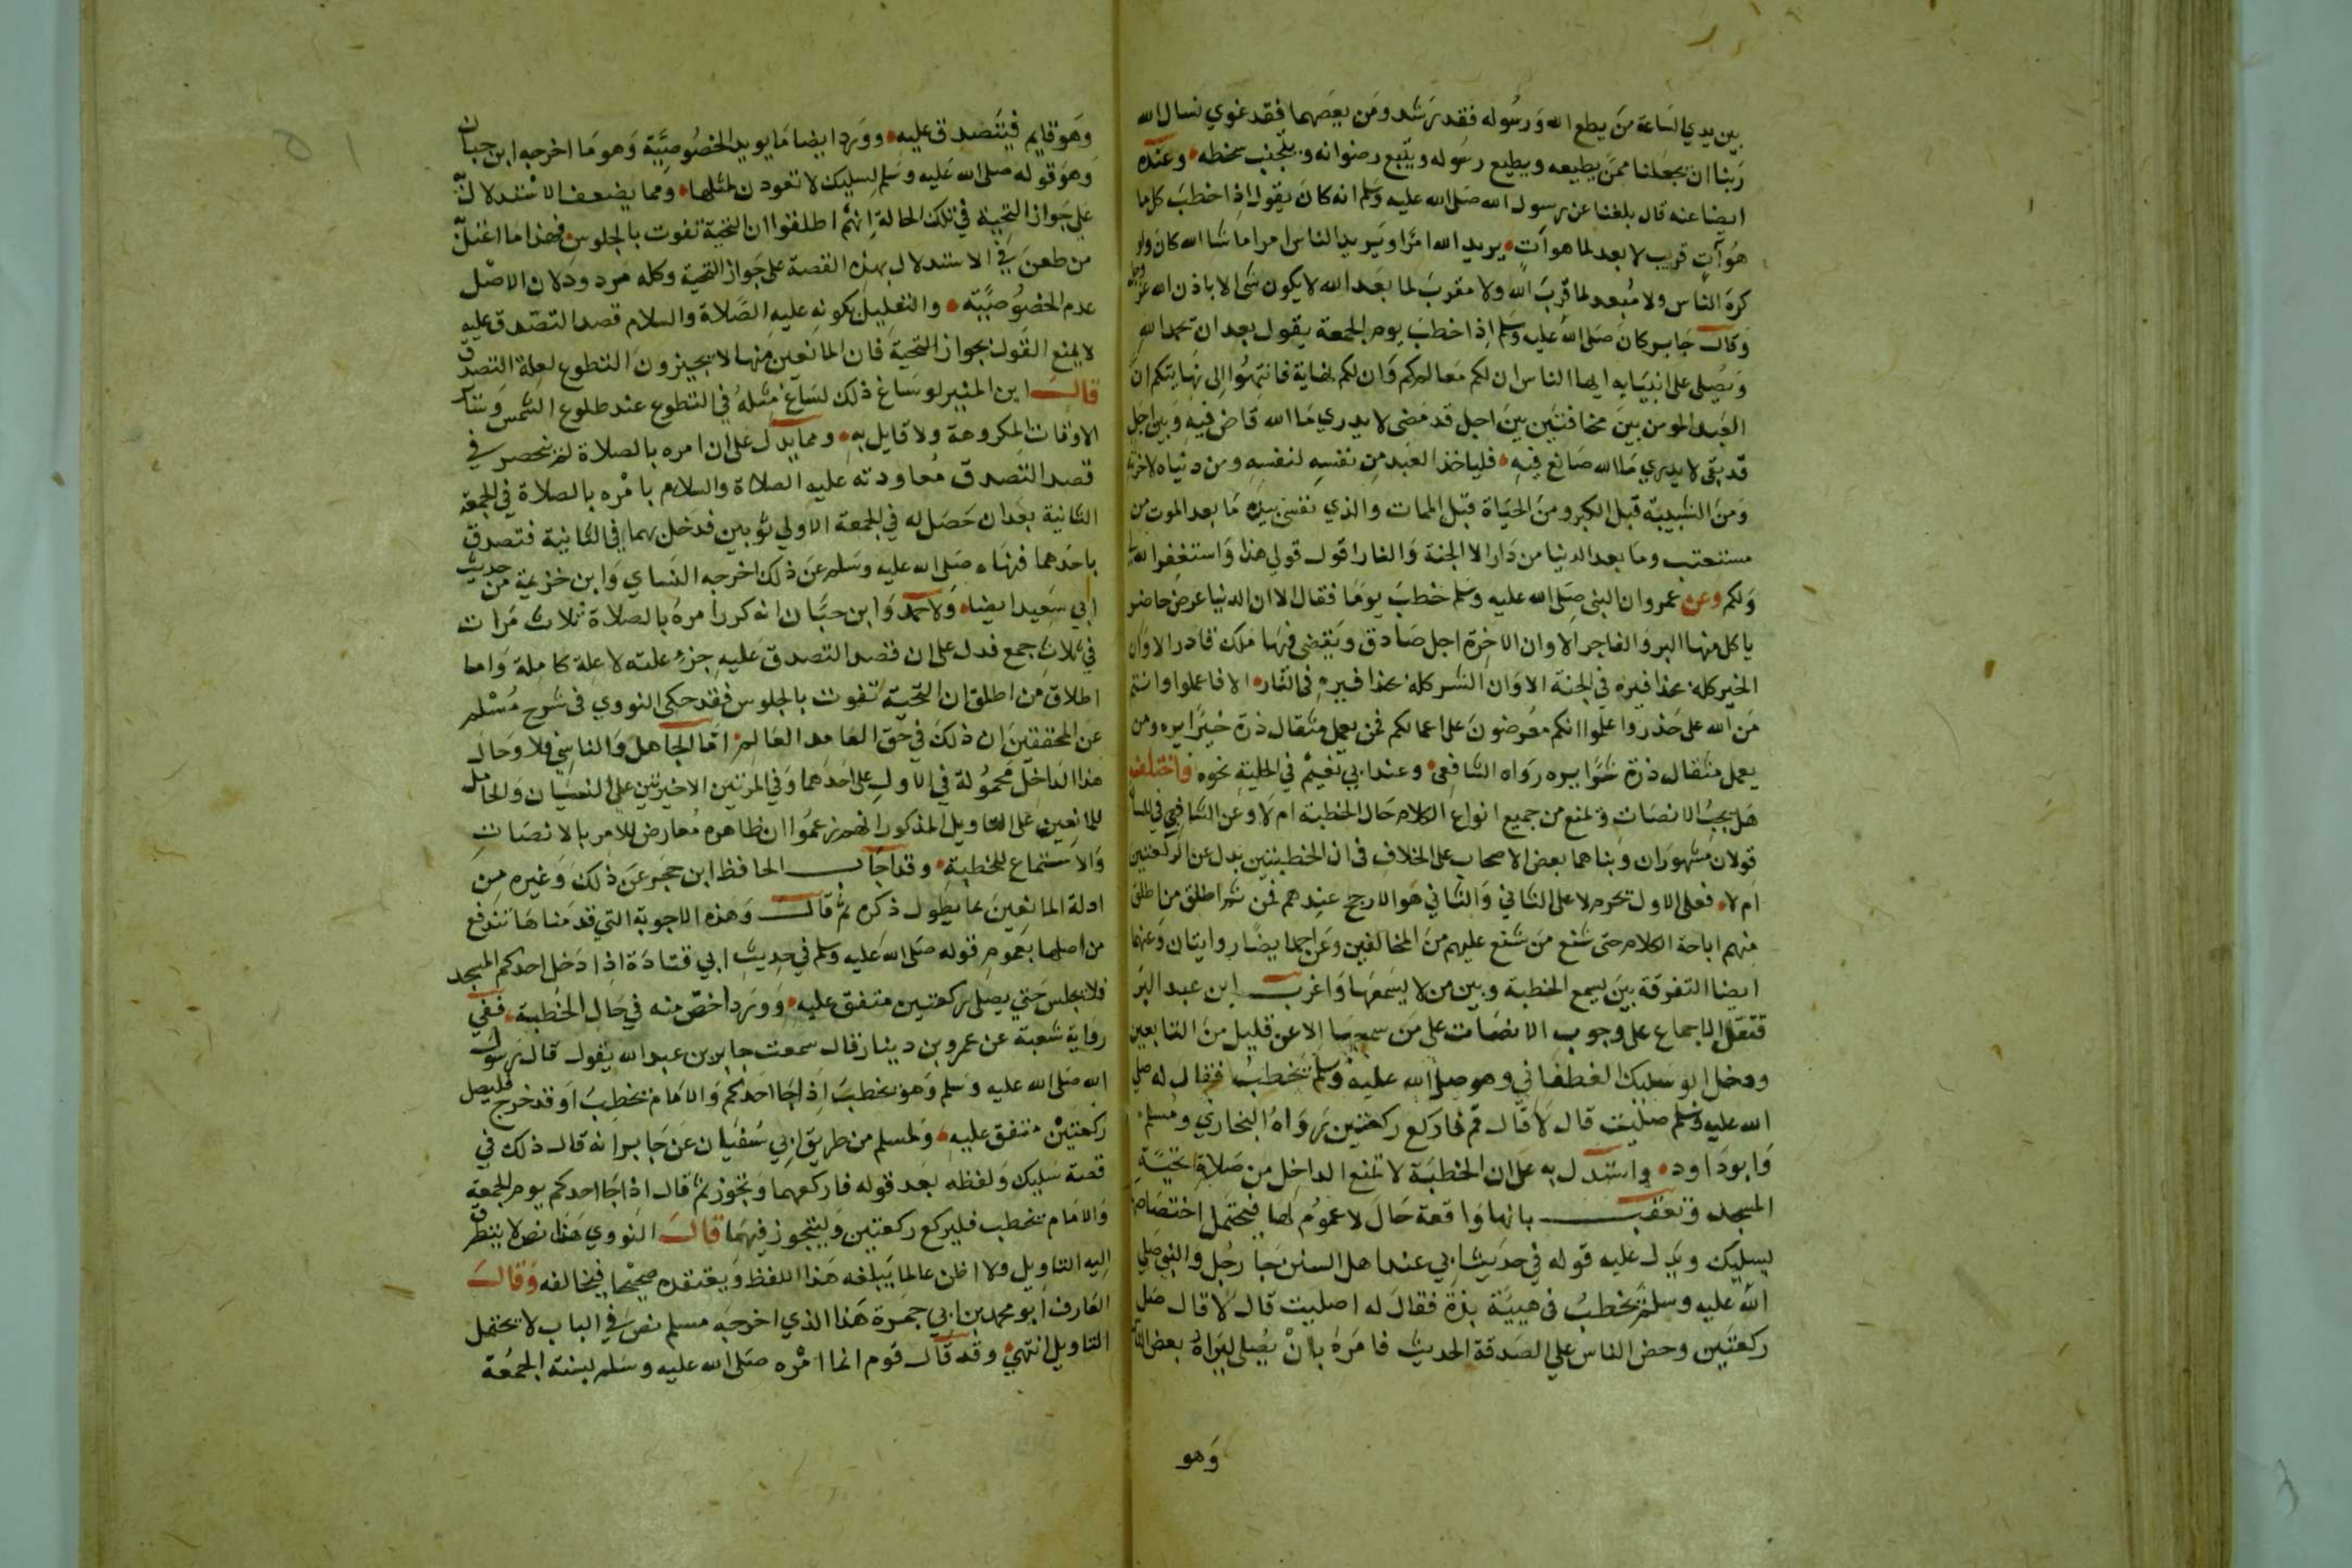 بين يدي الساعة من يطع الله ورسوله فقد رشد ومن يعصهما فقد غوي نسال الله
ربنا ان يجعلنا ممن يطيعه ويطيع رسوله ويتبع رضوانه ويتجنب سخطه وعنده
ايضا عنه قال بلغنا عن رسول الله صلى الله عليه وسلم انه كان يقول اذا خطب كل ما
هو آت قريب لا بعد لما هو آت يريد الله امرا ويريد الناس امرا ما شا الله كان ولو
كره الناس ولا مبعد لما قرب الله ولا مقرب لما بعد الله لا يكون شى الا باذن الله عز وجل
وقال جابر كان صلى الله عليه وسلم اذا خطب يوم الجمعة يقول بعد ان يحمد الله
ويصلى على انبيايه ايها الناس ان لكم معالم وان لكم نهاية فانتهوا الى نهايتكم ان
العبد المومن بين مخافتين بين اجل قد مضى لا يدري ما الله قاض فيه وبين اجل
قد بقى لا يدري ما الله صانع فيه فلياخذ العبد من نفسه لنفسه ومن دنياه لاخرته
ومن الشبيبة قبل الكبر ومن الحياة قبل الممات والذي نفسى بيده ما بعد الموت من
مستعتب وما بعد الدنيا من دار الا الجنة والنار اقول قولي هذا واستغفر الله لي
ولكم وعن عمرو ان النبى صلى الله عليه وسلم خطب يوما فقال الا ان الدنيا عرض حاضر
ياكل منها البر والفاجر الا وان الاخرة اجل صادق ويقضى فيها ملك قادر الا وان
الخير كله بحذافيره في الجنة الا وان الشر كله بحذافيره فى النار الا فاعملوا وانتم
من الله على حذر واعلموا انكم معرضون على اعمالكم فمن يعمل مثقال ذرة خيرا يره ومن
يعمل مثقال ذرة شرا يره رواه الشافعى وعند ابي نعيم في الحلية نحوه واختلف
هل يجب الانصات ويمنع من جميع انواع الكلام حال الخطبة ام لا وعن الشافعي في المسألة
قولان مشهوران وبناهما بعض الاصحاب على الخلاف فى ان الخطبتين بدل عن الركعتين
ام لا فعلى الاول تحرم لا على الثاني والثاني هو الارجح عندهم فمن ثم اطلق من اطلق
منهم اباحة الكلام حتى شنع من شنع عليهم من المخالفين وعن احمد ايضا روايتان وعنهما
ايضا التفرقة بين يسمع الخطبة وبين من لا يسمعها واغرب ابن عبد البر
فنقل الاجماع على وجوب الانصات على من سمعها الا عن قليل من التابعين
ودخل سليك الغطفاني وهو صلى الله عليه وسلم يخطب فقال له صلى
الله عليه وسلم صليت قال لا قال قم فاركع ركعتين رواه البخاري ومسلم
وابو داود واستدل به على ان الخطبة لا تمنع الداخل من صلاة تحية
المسجد وتعقب بانها واقعة حال لا عموم لها فيحتمل اختصاصه
بسليك ويدل عليه قوله في حديث ابي عند اهل السنن جا رجل والنبى صلى
الله عليه وسلم يخطب فى هيية بذة فقال له اصليت قال لا قال صل
ركعتين وحض الناس على الصدقة الحديث فامره بان يصلى ليراه بعض الناس
وهو
وهو قايم فيتصدق عليه وورد ايضا ما يويد الخصوصية وهو ما اخرجه ابن حبان
وهو قوله صلى الله عليه وسلم لسليك لا تعودن لمثلها ومما يضعف الاستدلال
علي جواز التحية في تلك الحالة انهم اطلقوا ان التحية تفوت بالجلوس فهذا ما اعتل
من طعن في الاستدلال بهذه القصة على جواز التحية وكله مردود لان الاصل
عدم الخصوصية والتعليل بكونه عليه الصلاة والسلام قصد التصدق عليه
لا يمنع القول بجواز التحية فان المانعين منها لا يجيزون التطوع لعلة التصدق
قال ابن المنير لو ساغ ذلك لساغ مثله في التطوع عند طلوع الشمس وسائر
الاوقات المكروهة ولا قايل به ومما يدل على ان امره بالصلاة لم ينحصر في
قصد التصدق معاودته عليه الصلاة والسلام بامره بالصلاة في الجمعة
الثانية بعد ان حصل له في الجمعة الاولي ثوبين فدخل بهما في الثانية فتصدق
باحدهما فنهاه صلى الله عليه وسلم عن ذلك اخرجه النساي وابن خزيمة من حديث
ابي سعيد ايضا ولاحمد وابن حبان انه كرر امره بالصلاة ثلاث مرات
في ثلاث جمع فدل على ان قصد التصدق عليه جزء علته لا علة كاملة واما
اطلاق من اطلق ان التحية تفوت بالجلوس فقد حكى النووي فى شرح مسلم
عن المحققين ان ذلك في حق العامد العالم اما الجاهل والناسي فلا وحال
هذا الداخل محمولة في الاول على احدهما وفي المرتين الاخيرتين على النسيان والحامل
للمانعين على التاويل المذكور انهم زعموا ان ظاهره معارض للامر بالانصات
والاستماع للخطبة وقد اجاب الحافظ ابن حجر عن ذلك وغيره من
ادلة المانعين بما يطول ذكره ثم قال وهذه الاجوبة التي قدمناها تندفع
من اصلها بعموم قوله صلى الله عليه وسلم في حديث ابي قتادة اذا دخل احدكم المسجد
فلا يجلس حتي يصلى ركعتين متفق عليه وورد اخص منه في حال الخطبة ففي
رواية شعبة عن عمرو بن دينار قال سمعت جابر بن عبد الله يقول قال رسول
الله صلى الله عليه وسلم وهو يخطب اذا جا احدكم والامام يخطب او قد خرج فليصل
ركعتين متفق عليه ولمسلم من طريق ابي سفيان عن جابر انه قال ذلك في
قصة سليك ولفظه بعد قوله فاركعهما وتجوز ثم قال اذا جا احدكم يوم الجمعة
والامام يخطب فليركع ركعتين وليتجوز فيهما قال النووي هذا نص لا يتطرق
اليه التاويل ولا اظن عالما يبلغه هذا اللفظ ويعتقده صحيحا فيخالفه وقال
العارف ابو محمد بن ابي جمرة هذا الذي اخرجه مسلم نص في الباب لا يحتمل
التاويل انتهي وقد قال قوم انما امره صلى الله عليه وسلم بسنة الجمعة